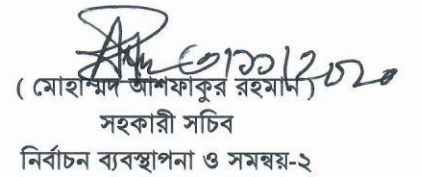 ৩০/১১/২০২০
( মোহাম্মদ আশফাকুর রহমান )
সহকারী সচিব
নির্বাচন ব্যবস্থাপনা ও সমন্বয়-২